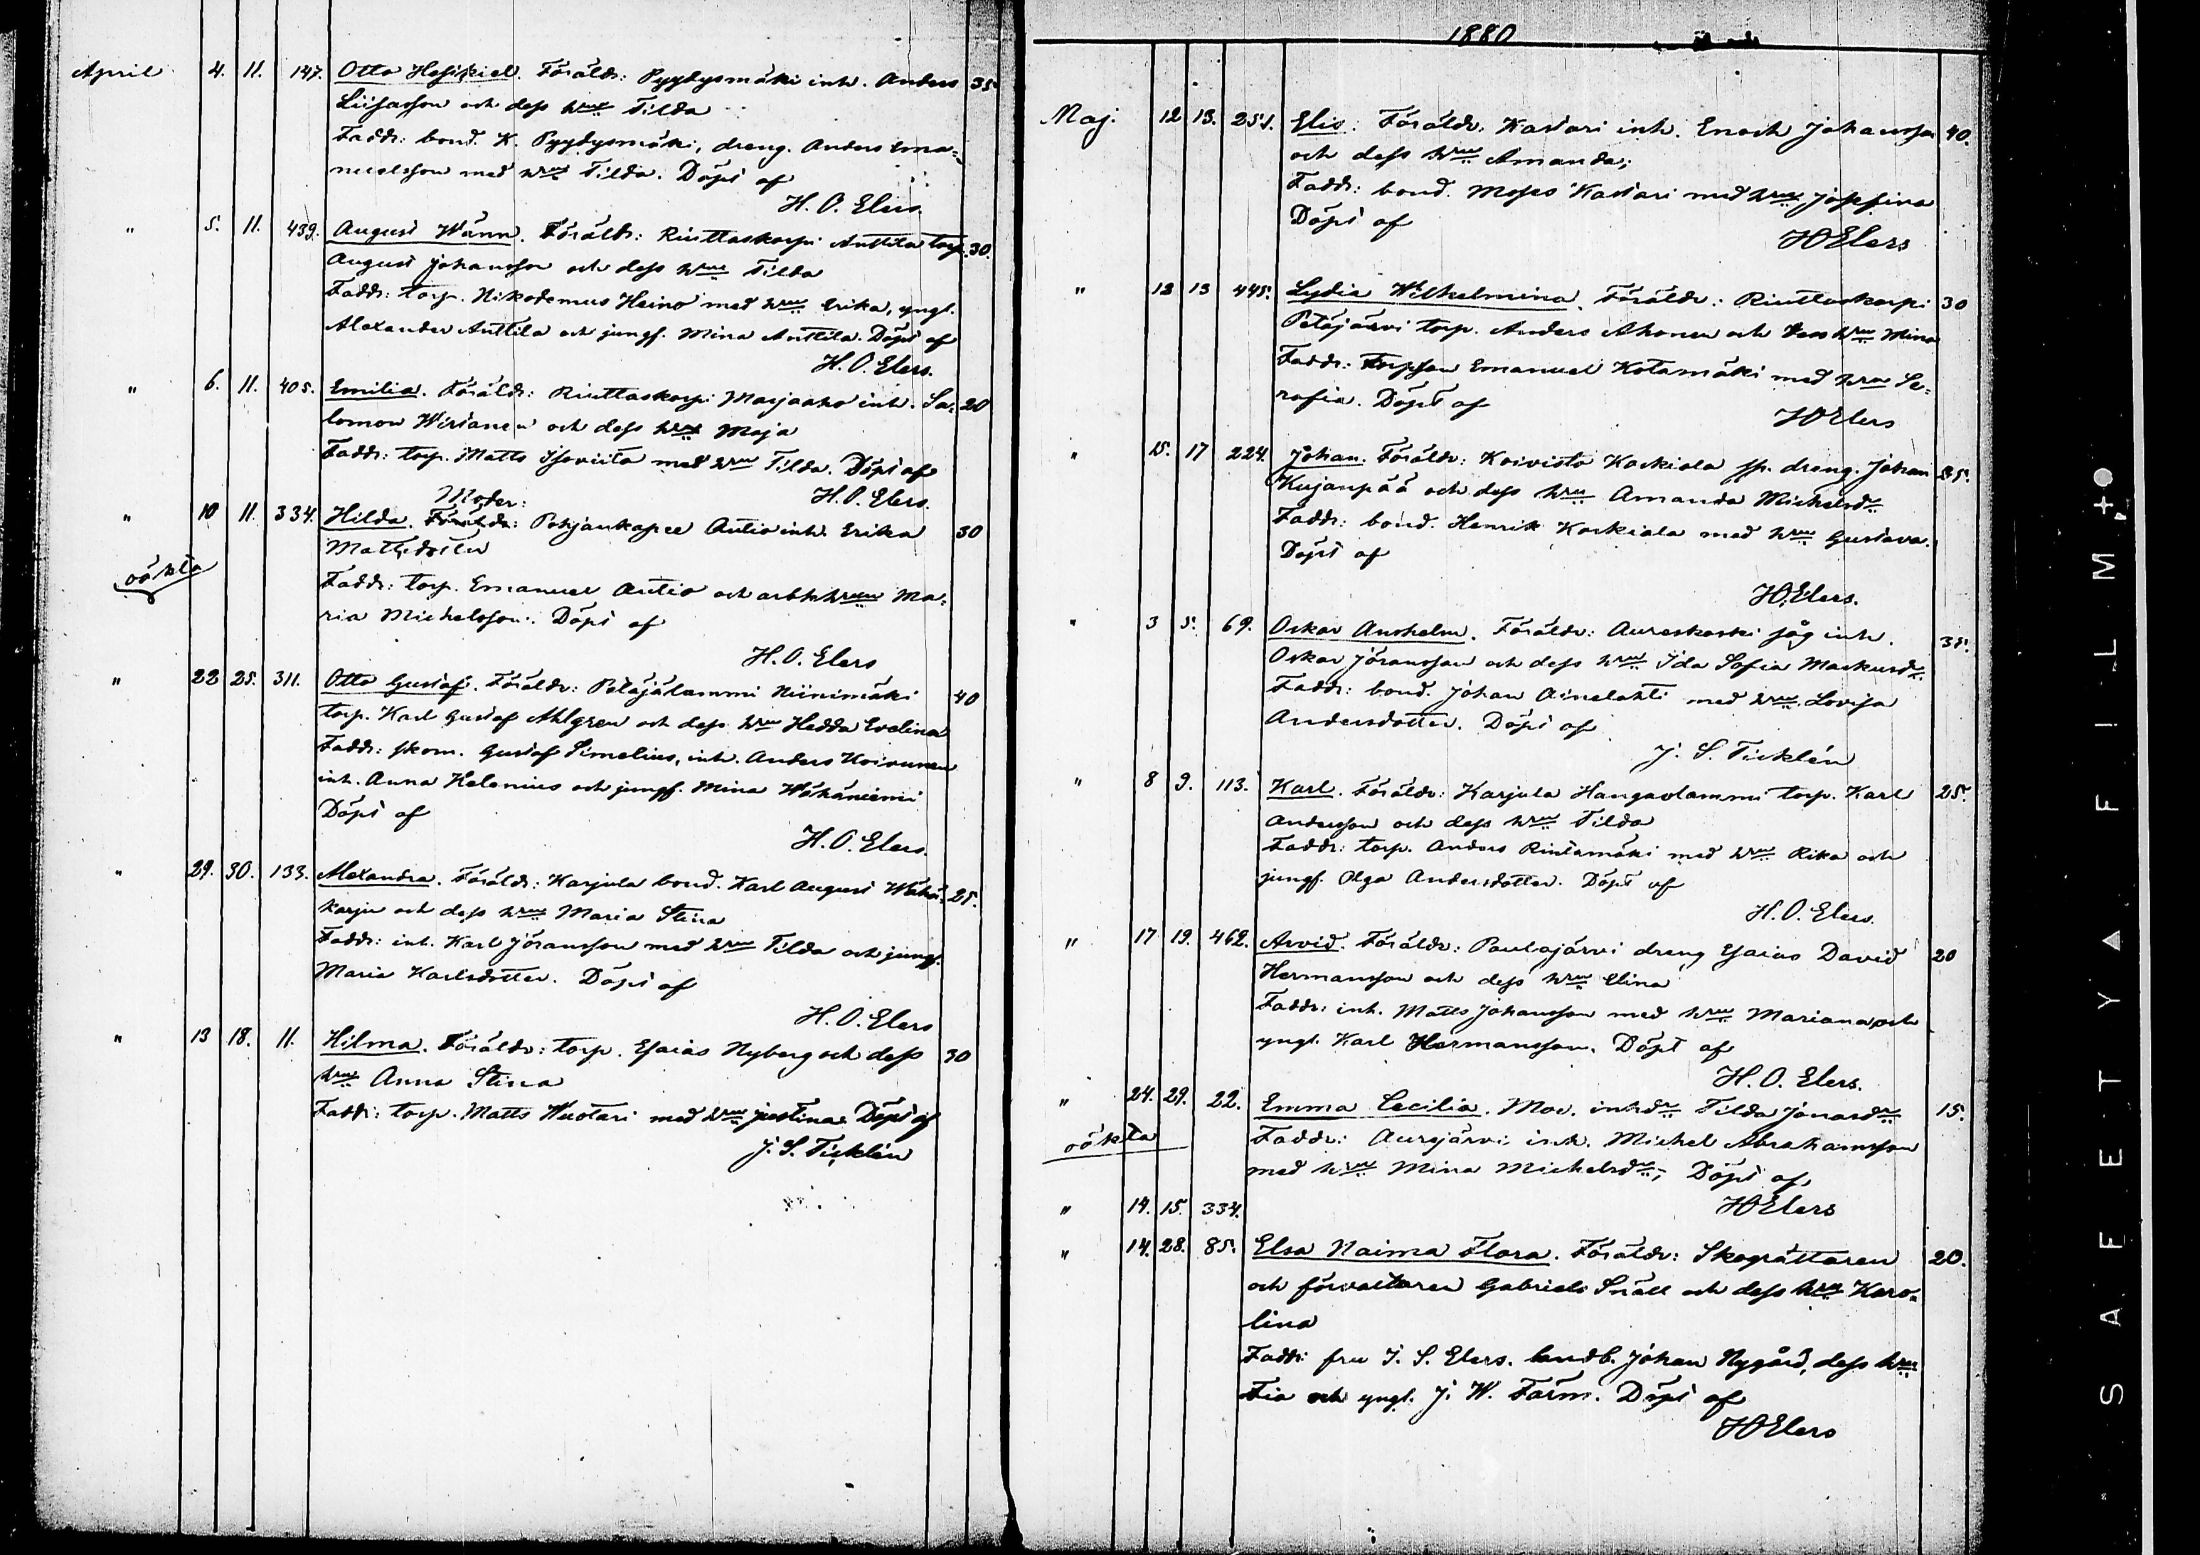 April 4. 11. 147. Otto Hesikiel. Föräldr: Pyydysmäki inh. Anders 35
Liisasson och dess hru Tilda
Faddr: bond. K. Pyydysmäki, dreng. Anders Ema=
nuelsson med hru Tilda. Döpt af
H. O. Elers.
" 5. 11. 439. August Wänn. Föräldr: Riuttaskorpi Anttila torp. 30.
August Johansson och dess hru Tilda
Faddr: torp. Nikodemus Heino med hru Erika, yngl.
Alexander Anttila och jungf. Mina Anttila. Döpt af
H. O. Elers.
" 6. 11. 405. Emilia. Föräldr: Riuttaskorpi Marjaaho inh. Sa= 20
lomon Wirtanen och dess hru Maja
Faddr: torp. Matts Isoviita med hru Tilda. Döpt af
H. O. Elers.
Moder:
" 10 11. 334. Hilda. Föräldr: Pohjankapee Autio inh. Erika 30
Mattsdotter
oäkta
Faddr: torp. Emanuel Autio och arbkhrun Ma=
ria Michelsson. Döpt af
H. O. Elers
" 22 25. 311. Otto Gustaf. Föräldr: Petäjälammi Niinimäki 40
torp. Karl Gustaf Ahlgren och dess hru Hedda Evelina
Faddr: skom. Gustaf Simelius, inh. Anders Koivunen
inh. Anna Helenius och jungf. Mina Wähäniemi
Döpt af
H. O. Elers.
" 29. 30. 133. Alexandra. Föräldr: Karjula bond. Karl August Wähä= 25.
karju och dess hru Maria Stina
Faddr: inh. Karl Jöransson med hru Tilda och jungf.
Maria Karlsdotter. Döpt af
H. O. Elers
" 13 18. 11. Hilma. Föräldr: torp. Esaias Nyberg och dess 30
hru Anna Stina
Faddr: torp. Matts Wuotari med hru Justina. Döpt af
J. S. Ticklén
1880
Maj. 12 13. 251. Elis: Föräldr: Kastari inh. Enoch Johansson 40.
och dess hru Amanda;
Faddr: bond. Moses Kastari med hru Josefina
Döpt af
HOElers
" 12 13 445. Lydia Wilhelmina. Föräldr: Riuttaskorpi 30
Petäjärvi torp. Anders Ahonen och dess hru Mina
Faddr: Torpson Emanuel Kotamäki med hru Se=
rafia. Döpt af
HOElers
" 15. 17 224. Johan. Föräldr: Koivisto Koskiala sp. dreng. Johan 25.
Kujanpää och dess hru Amanda Michelsdr
Faddr: bond. Henrik Koskiala med hru Gustava.
Döpt af
HOElers.
" 3 5. 69. Oskar Anshelm. Föräldr: Aureskoski såg inh. 35.
Oskar Jöransson och dess hru Ida Sofia Markusdr.
Faddr: bond. Johan Ainelahti med hru Lovisa
Andersdotter. Döpt af
J. S. Ticklén
" 8 9. 113. Karl. Föräldr: Karjula Hangaslammi torp. Karl 25.
Andersson och dess hru Tilda
Faddr: torp. Anders Rintamäki med hru Rika och
jungf. Olga Andersdotter. Döpt af
H. O. Elers.
" 17 19. 462. Arvid. Föräldr: Paulajärvi dreng Esaias David 20
Hermansson och dess hru Elina
Faddr: inh. Matts Johansson med hru Mariana och
yngl. Karl Hermansson. Döpt af
H. O. Elers.
" 24. 29. 22. Emma Cecilia. Mod. inhdr Tilda Jonasdr 15.
oäkta Faddr: Aurejärvi inh. Michel Abrahamsson
med hru Mina Michelsdr; Döpt af
" 14. 15. 334. HOElers
" 14. 28. 85. Elsa Naima Flora. Föräldr: Skogrättaren 20.
och förvaltaren Gabriels Snäll och dess hru Karo=
lina
Faddr: fru J. S. Elers. landb. Johan Nygård, dess hru
Fia och yngl. J. W. Farm. Döpt af
HOElers
SAFETY▲FILM